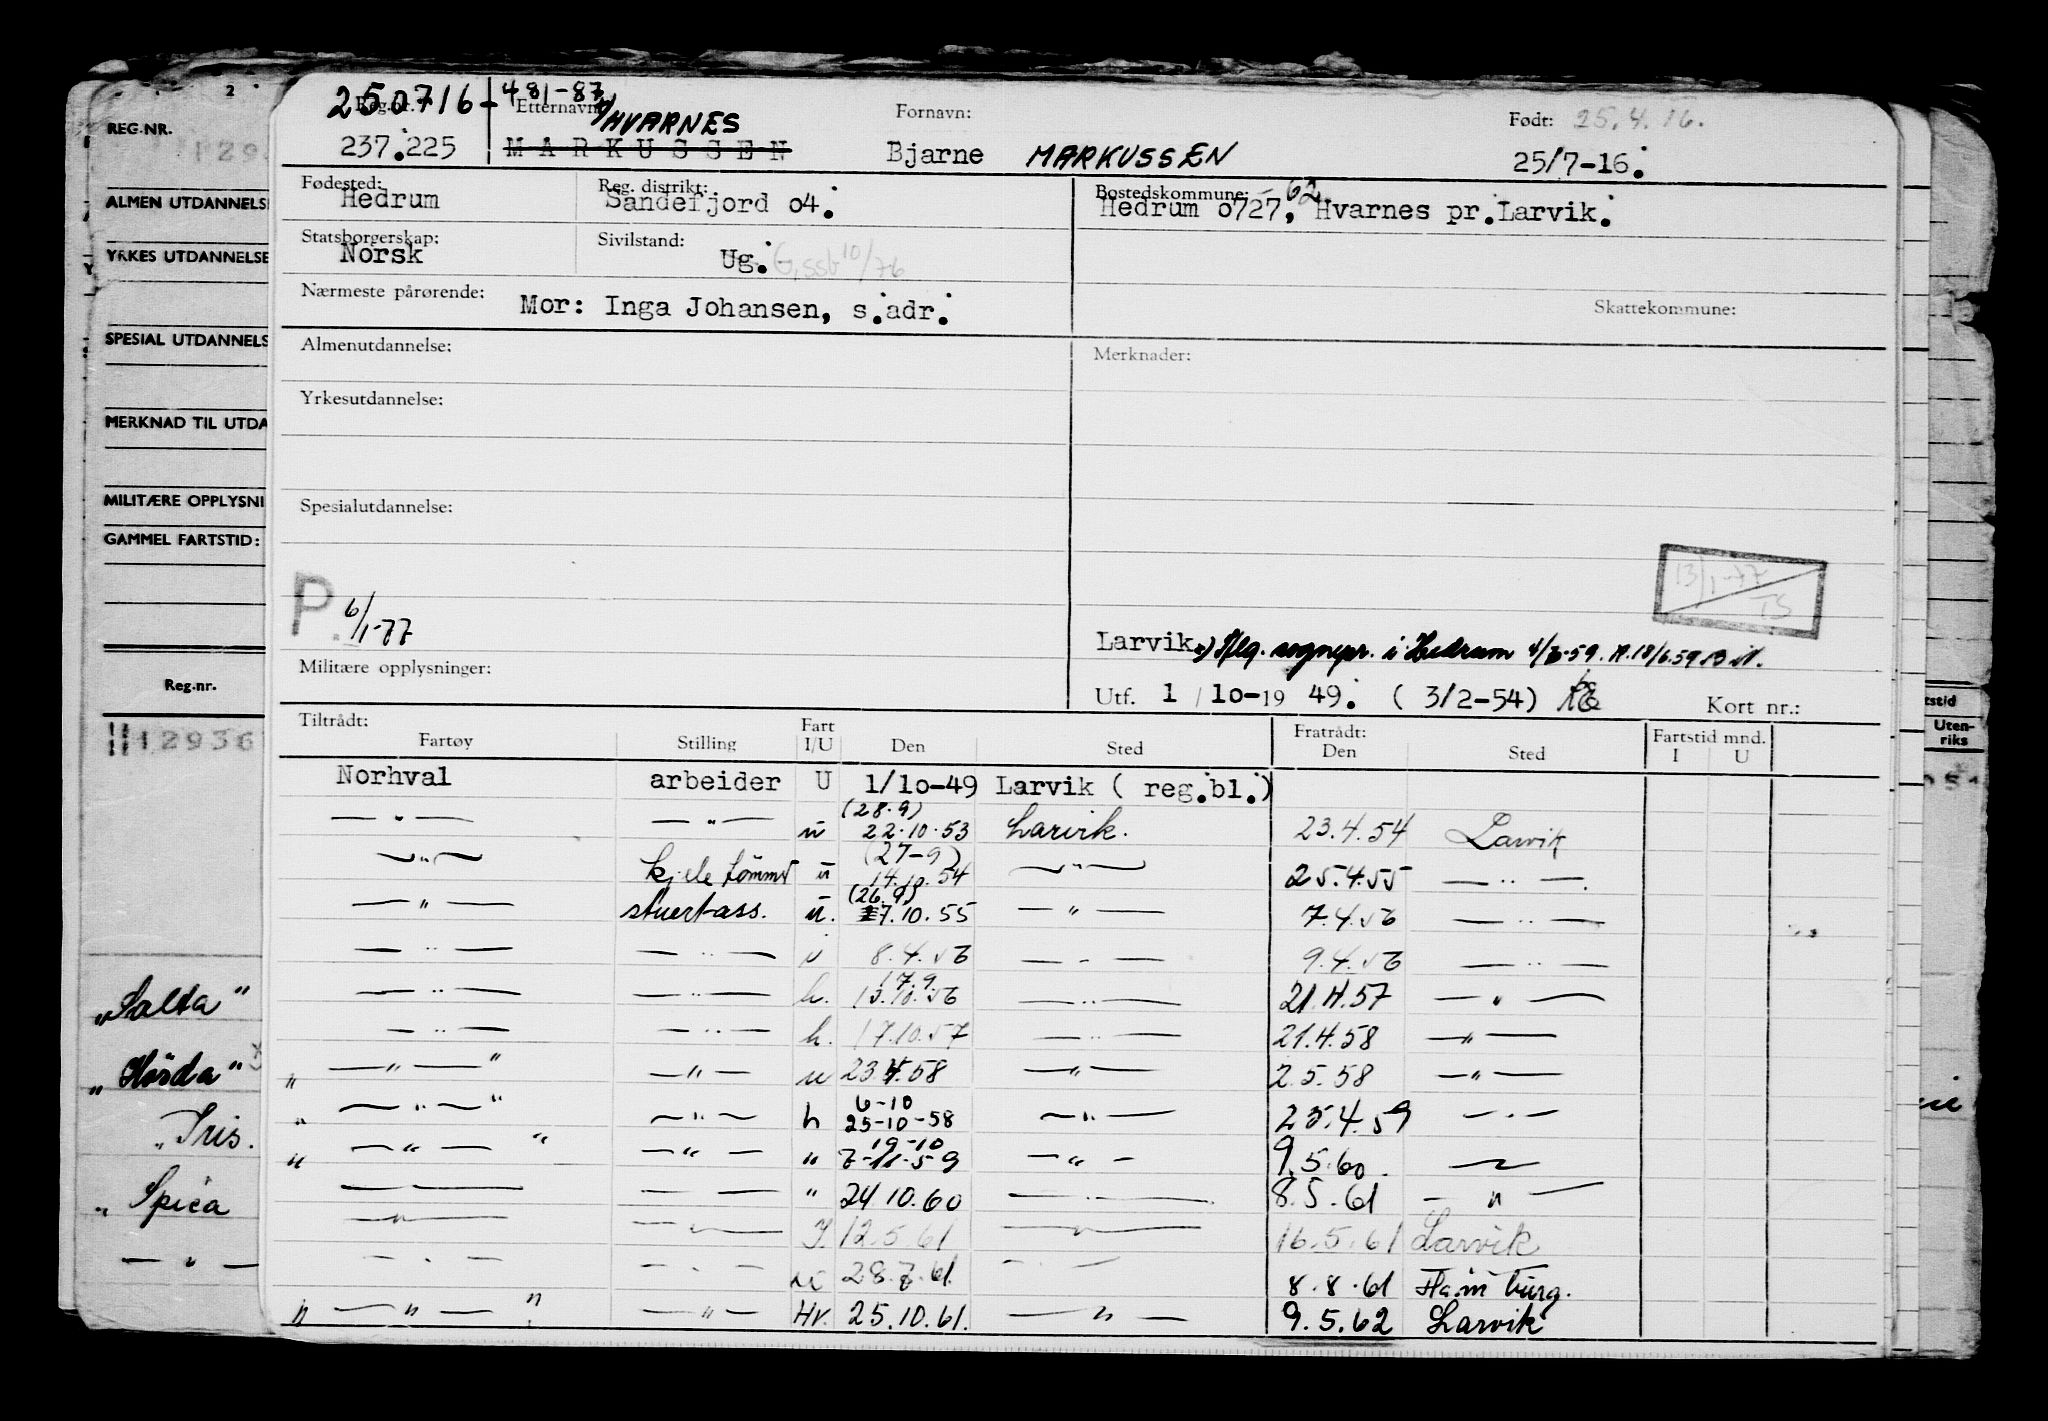 2
REG.NR.
129
ALMEN UTDANNELS
YRKES UTDANNELSE
SPESIAL UTDANNELS
MERKNAD TIL UTDA
MILITÆRE OPPLYSNI
GAMMEL FARTSTID:
Reg.nr.
12936
„Salta"
„Hörda"
„Iris.
„Spica
— " —
250716-48187
Reg.nr. Etternavn: HVARNES Fornavn: Født: 25.4.16.
237.225 MARKUSSEN Bjarne MARKUSSEN 25/7-16.
Fødested: Reg. distrikt: Bostedskommune: -62
Hedrum Sandefjord o4. Hedrum o727, Hvarnes pr. Larvik.
Statsborgerskap: Sivilstand:
Norsk Ug. G, ssb 10/76
Nærmeste pårørende: Mor: Inga Johansen, s.adr. Skattekommune:
Almenutdannelse: Merknader:
Yrkesutdannelse:
Spesialutdannelse:
13/1-77 TS
P. 6/1-77
Larvik. sognepr. i Hedrum
Militære opplysninger:
Utf. 1/1o-19 49. ( 3/2-54) Kort nr.:
Tiltrådt: Fart Fratrådt: Fartstid mnd.
Fartøy Stilling I/U Den Sted Den Sted I U
Norhval arbeider U 1/1o-49 Larvik ( reg.bl.)
(28.9)
— " — — " — u 22.10.53 Larvik. 23.4.54 Larvik
(27-9)
— " — kjele tømmr u 14.10.54 — " — 25.4.55 — " —
(26.9)
— " — stuertass. u. 17.10.55 — " — 7.4.56 — " —
— " — — " — u 8.4.56 — " — 9.4.56 — " —
17.9.
— " — — " — h. 13.10.56 — " — 21.4.57 — " —
— " — — " — h. 17.10.57 — " — 21.4.58 — " —
" — " — " — " — u 23.4.58 — " — 2.5.58 — " —
6-10
" — " — " — " — h 25-10-58 — " — 25.4.59 — " —
19-10
" — " — " — " — " 7-11-59 — " — 9.5.60. — " —
— — — — " 24.10.60 — " — 8.5.61 — " —
— " — — " — I. 12.5.61 — " — 16.5.61 Larvik
— " — — " — u 28.7.61. — " — 8.8.61 Hamburg.
" — " — " — " — Hv. 25.10.61. — " — 9.5.62 Larvik
tstid
Uten-
riks